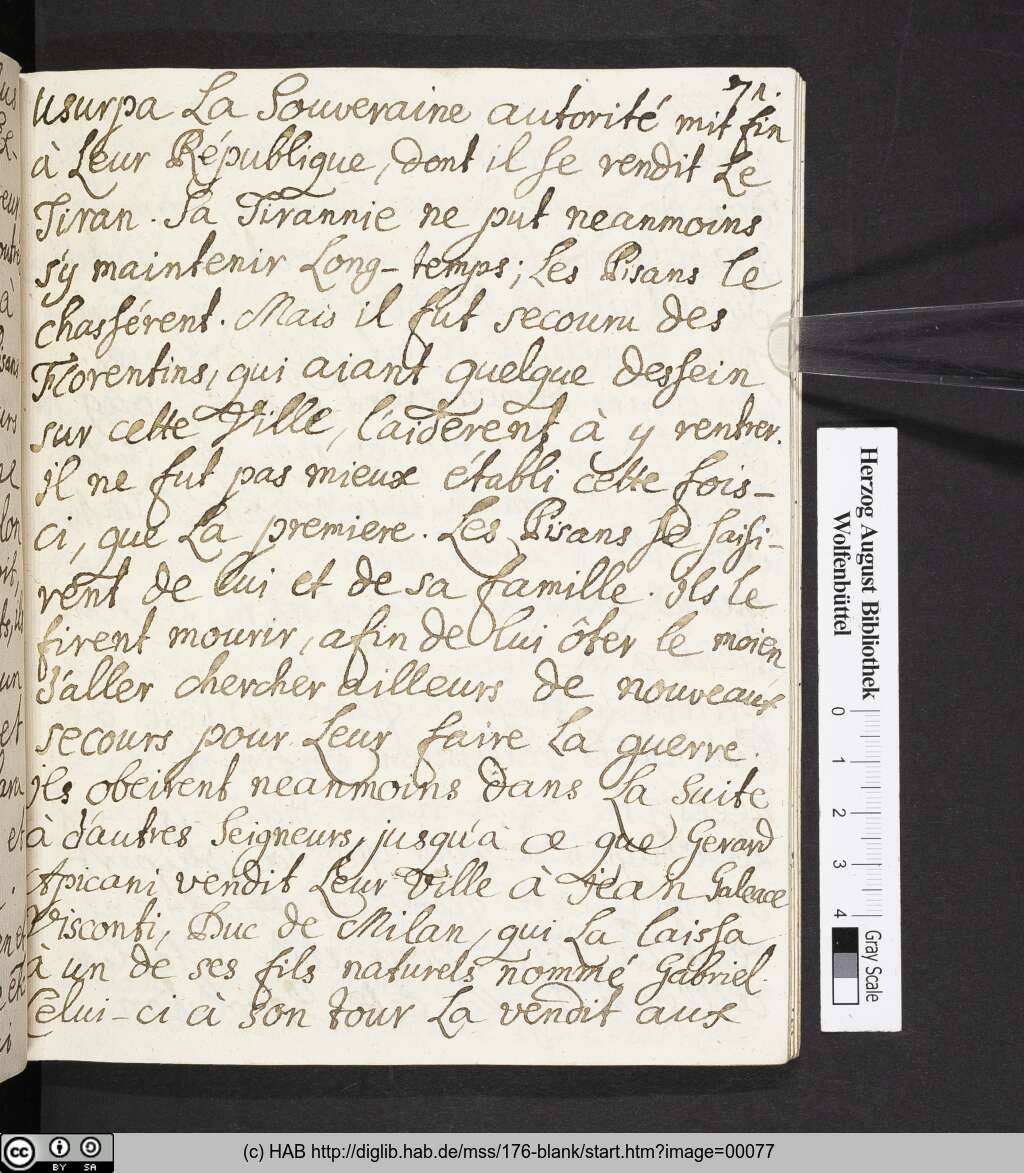 71.
usurpa La Souveraine autorité mit fin
à Leur République, dont il se rendit Le
Tiran. Sa Tirannie ne put neanmoins
s'y maintenir Long-temps; Les Pisans le
chassérent. Mais il fut secouru des
Florentins, qui aiant quelque dessein
sur cette Ville, l'aidérent à y rentrer.
il ne fut pas mieux établi cette fois-
ci, que La premiere. Les Pisans se saisi-
rent de lui et de sa famille. Ils le
firent mourir, afin de lui ôter le moien
d'aller chercher ailleurs de nouveaux
secours pour Leur faire La guerre.
ils obeirent neanmoins dans La Suite
à d'autres Seigneurs, jusqu'à ce que Gerard
Apicani vendit Leur Ville à Jean Galeace
Visconti, Duc de Milan, qui La laissa
à un de ses fils naturels nommé Gabriel.
Celui-ci à son tour La vendit aux
Herzog August Bibliothek
Wolfenbüttel
0 1 2 3 4
Gray Scale
cc BY SA
(c) HAB http://diglib.hab.de/mss/176-blank/start.htm?image=00077